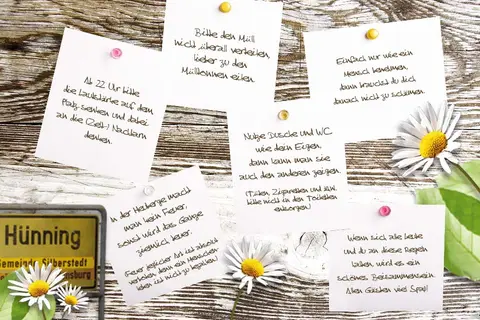 Bitte den Müll
nicht überall verteilen,
lieber zu den
Mülltonnen eilen.
Einfach nur wie ein
Mensch benehmen,
dann brauchst du dich
danach nicht zu schämen.
Ab 22 Uhr bitte
die Lautstärke auf dem
Platz senken und dabei
an die (Zelt-) Nachbarn
denken.
Nutze Dusche und WC
wie dein Eigen,
dann kann man sie
auch den anderen zeigen.
(Tüten, Zigaretten und
bitte nicht in den Toiletten
entsorgen)
In der Herberge macht
man kein Feuer,
sonst wird das Ganze
ziemlich teuer.
Feuer jeglicher Art ist absolut
verboten denn ein Menschen-
leben ist nicht zu bezahlen!
Wenn sich alle Leute
und du an diese Regeln
halten, wird es ein
schönes Beisammensein.
Allen Gästen viel Spaß!
Hünning
Gemeinde Silberstedt